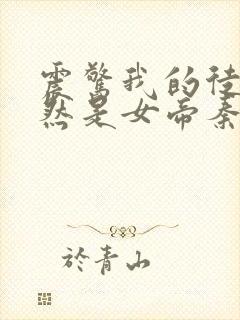 震驚我的徒
然是女帝秦
於青山